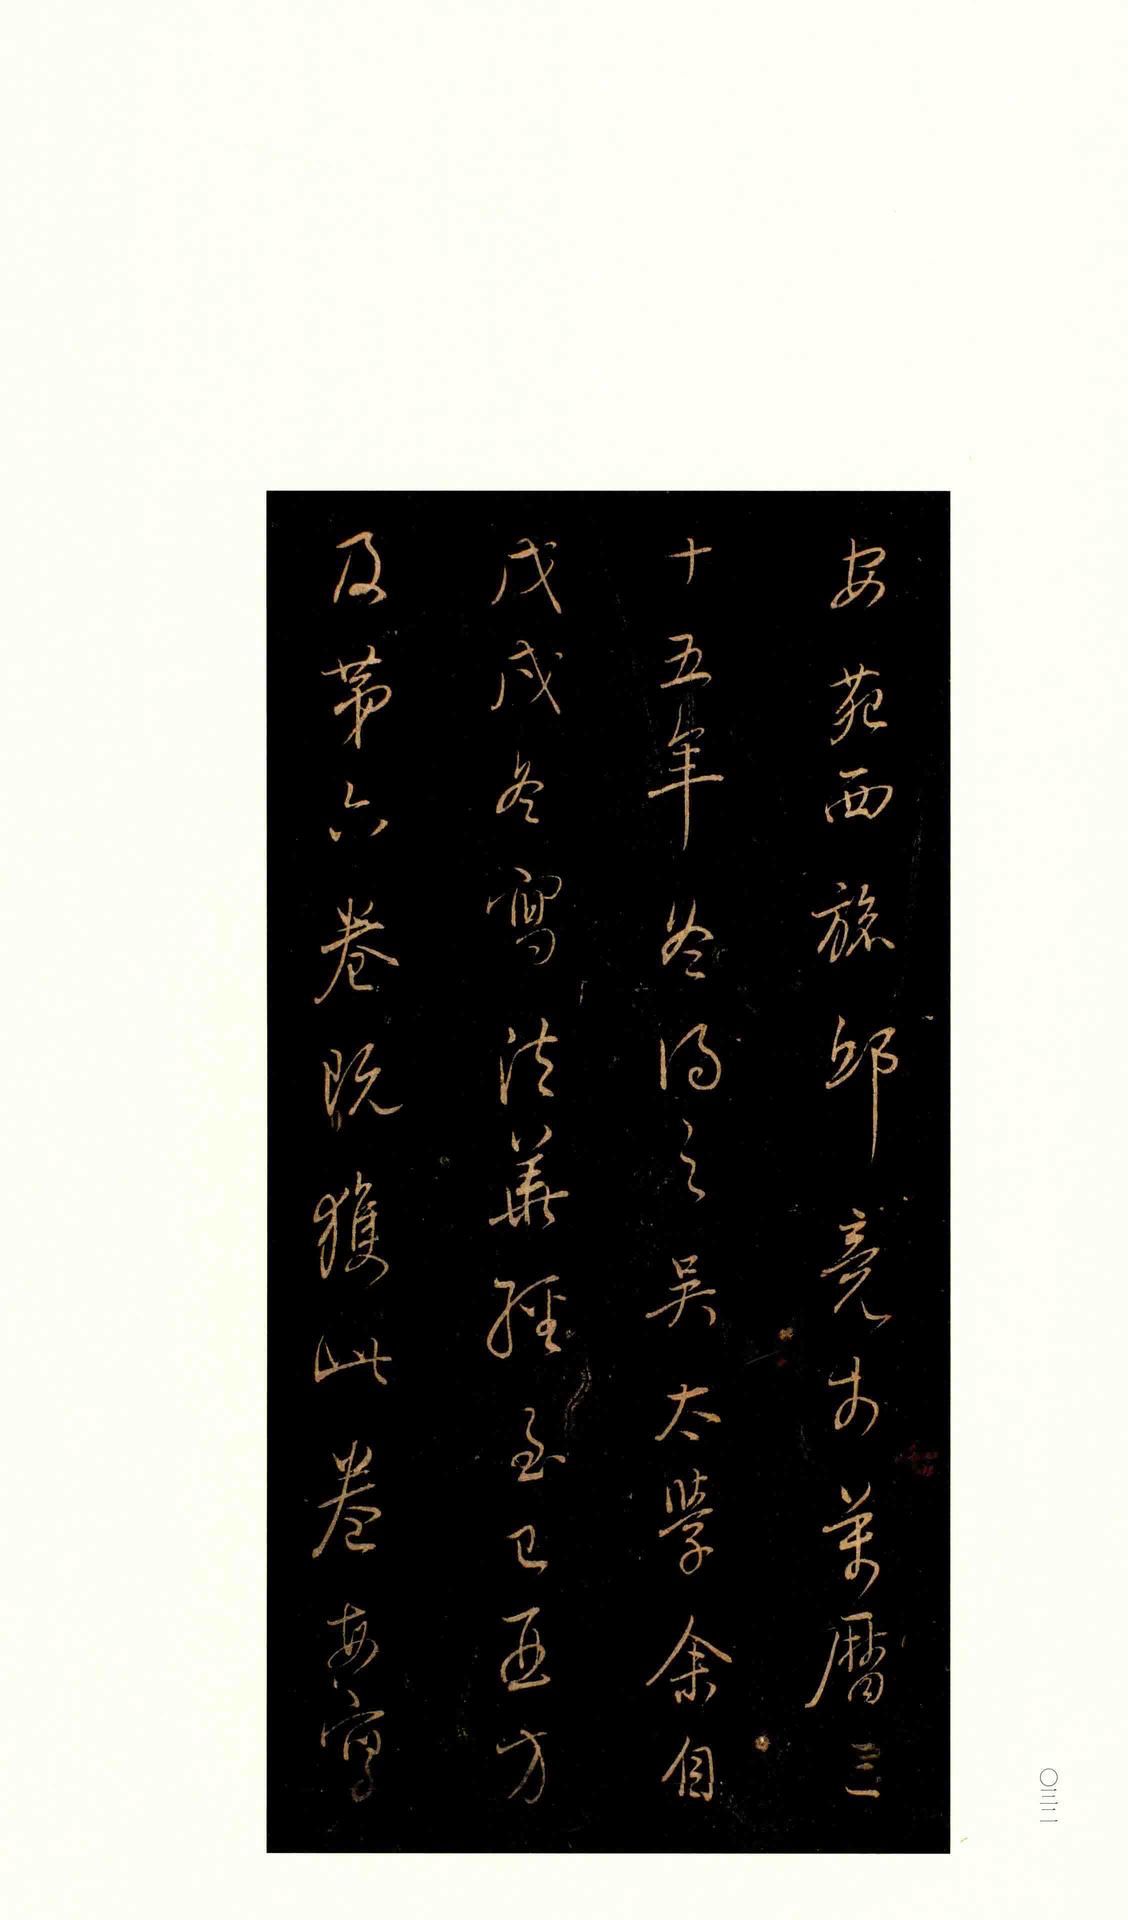 安苑西旅邸竟萬曆三
十五年冬得之吳太學余自
戊戌冬寫法華經至己酉方
及第六卷既獲此卷每寫